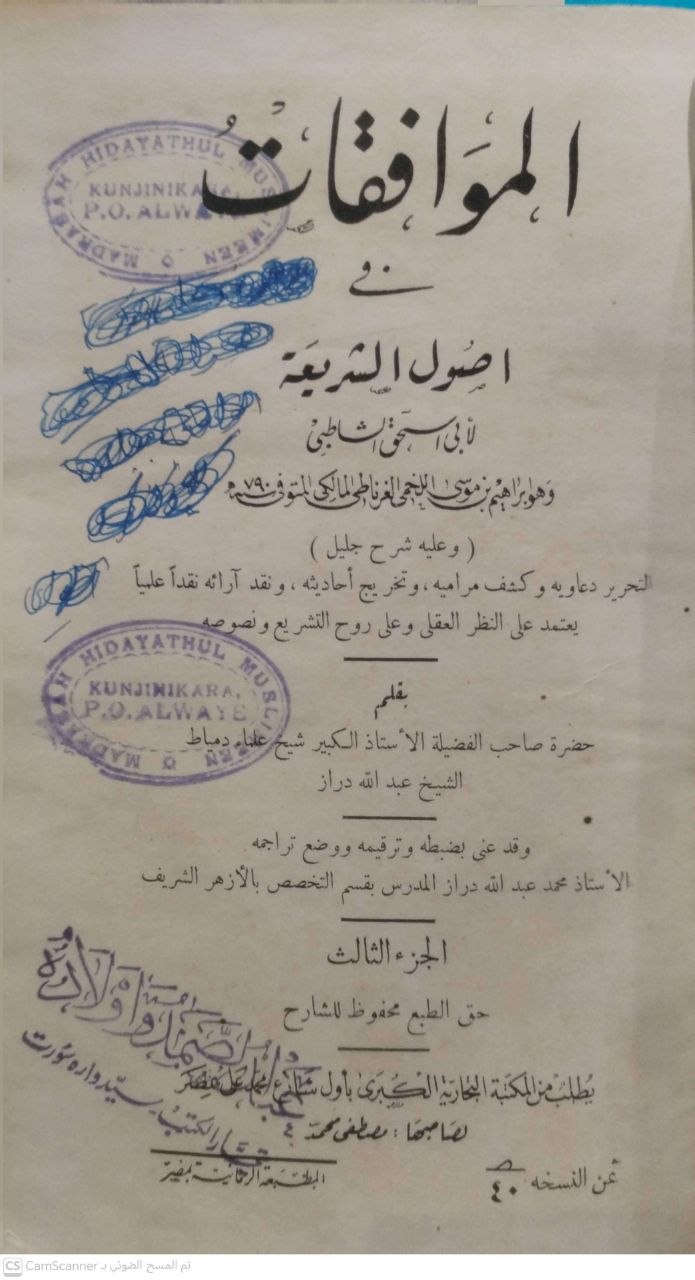 الموافقات
في
اصول الشريعة
لأبى اسحق الشاطبى
وهو ابراهيم بن موسى اللخمى الغرناطى المالكى المتوفى سنة ٧٩٠
( وعليه شرح جليل )
لتحرير دعاويه وكشف مراميه ، وتخريج أحاديثه ، ونقد آرائه نقداً علمياً
يعتمد على النظر العقلى وعلى روح التشريع ونصوصه
بقلم
حضرة صاحب الفضيلة الأستاذ الكبير شيخ علماء دمياط
الشيخ عبد الله دراز
وقد عنى بضبطه وترقيمه ووضع تراجمه
الأستاذ محمد عبد الله دراز المدرس بقسم التخصص بالأزهر الشريف
الجزء الثالث
حق الطبع محفوظ للشارح
يطلب من المكتبة التجارية الكبرى بأول شارع محمد على بمصر
لصاحبها : مصطفى محمد
المطبعة الرحمانية بمصر
ثمن النسخه ٤٠
MADRASAH HIDAYATHUL MUSLIMEEN
KUNJINIKARA,
P.O. ALWAYE
MADRASAH HIDAYATHUL MUSLIMEEN
KUNJINIKARA,
P.O. ALWAYE
عبد الصمد واولاده
تجار الكتب سيدواره سورت
CS CamScanner تم المسح الضوئي بـ